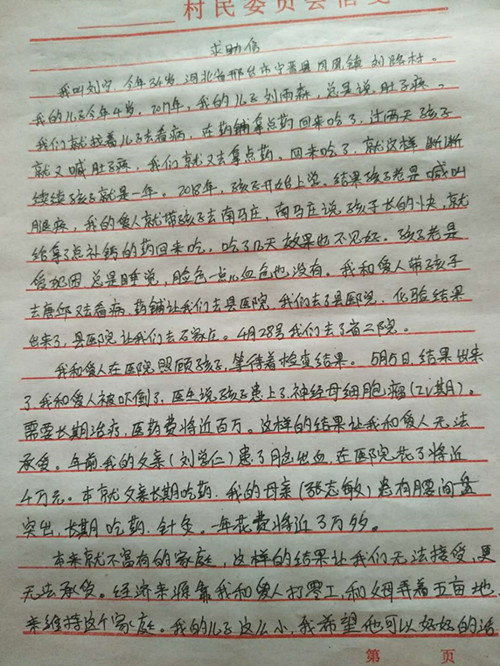 村民委员会信笺
求助信
我叫刘宁，今年34岁，河北省邢台市宁晋县凤凰镇刘路村。
我的儿子今年4岁。2017年，我的儿子刘雨森，总是说，肚子疼。
我们就拉着儿子去看病，在药铺拿点药回来吃了，过两天孩子
就又喊肚子疼，我们就又去拿点药，回来吃了，就这样断断
续续孩子就是一年。2018年，孩子开始上学，结果孩子老是喊叫
腿疼，我的爱人就带孩子去南马庄，南马庄说，孩子长的快，就
给拿了点补钙的药回来吃，吃了几天效果也不见好。孩子老是
爱犯困总是睡觉，脸色一点儿血色也没有。我和爱人带孩子
去唐邱又去看病，药铺让我们去县医院，我们去了县医院，化验结果
出来了，县医院让我们去石家庄。4月28号我们去了省二院。
我和爱人在医院照顾孩子，等待着检查结果。5月5日，结果出来
了，我和爱人被吓倒了，医生说孩子患上了神经母细胞瘤（IV期）。
需要长期治疗，医药费将近百万。这样的结果让我和爱人无法
承受。年前我的父亲（刘学仁）患了脑出血，在医院花了将近
4万元。本就父亲长期吃药，我的母亲（张志敏）患有腰间盘
突出，长期吃药，针灸。一年花费将近3万多。
本来就不富有的家庭，这样的结果让我们无法接受，更
无法承受。经济来源靠我和爱人打零工，和父母弄着五亩地，
来维持这个家庭。我的儿子这么小，我希望他可以好好的活
第 页